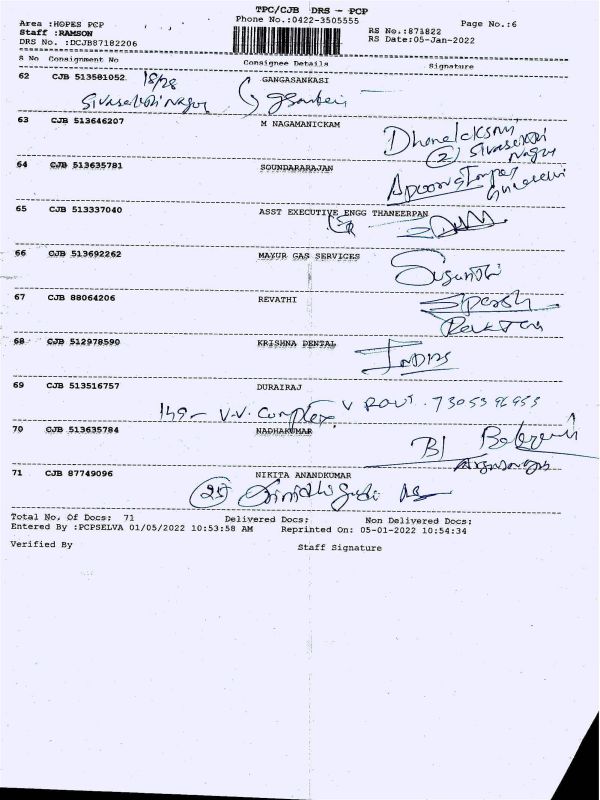 TPC/CJB DRS - PCP
Area :HOPES PCP
Phone No.:0422-3505555
Page No.:6
Staff :RAMSON
RS No.:871822
DRS No. :DCJB87182206
RS Date:05-Jan-2022
S No Consignment No Consignee Details Signature
62 CJB 513581052 18/28 GANGASANKASI
63 CJB 513646207 M NAGAMANICKAM
(2) Sivasakthi
Nagar
64 CJB 513635781 SOUNDARARAJAN
65 CJB 513337040 ASST EXECUTIVE ENGG THANEERPAN
66 CJB 513692262 MAYUR GAS SERVICES
67 CJB 88064206 REVATHI
68 CJB 512978590 KRISHNA DENTAL
69 CJB 513516757 DURAIRAJ
149- V.V. Complex
70 CJB 513635784 NADHAKUMAR
71 CJB 87749096 NIKITA ANANDKUMAR
(25)
Total No. Of Docs: 71 Delivered Docs: Non Delivered Docs:
Entered By :PCPSELVA 01/05/2022 10:53:58 AM Reprinted On: 05-01-2022 10:54:34
Verified By Staff Signature